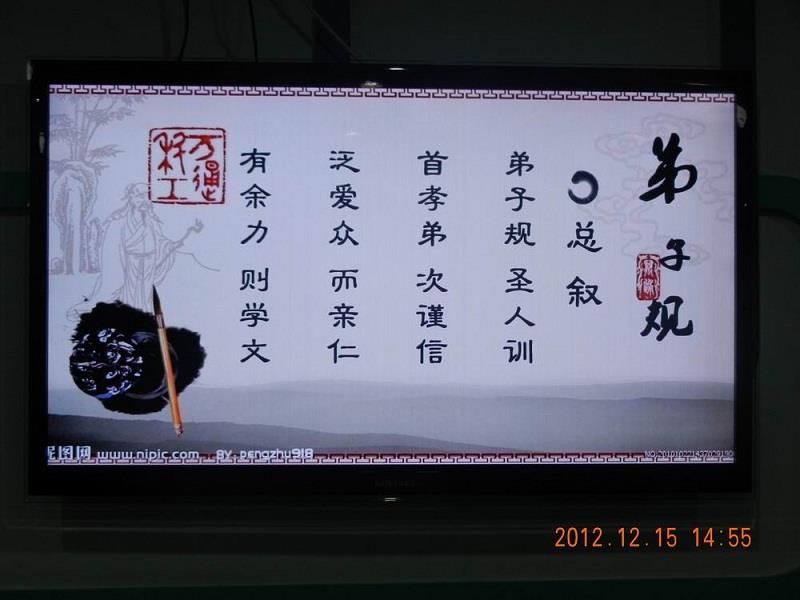 弟子规
总叙
弟子规 圣人训
首孝弟 次谨信
泛爱众 而亲仁
有余力 则学文
昵图网 www.nipic.com BY pengzhu918
2012.12.15 14:55